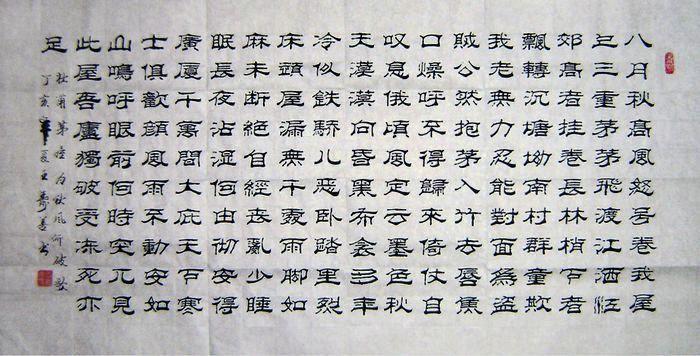 八月秋高風怒号卷我屋
上三重茅茅飛渡江洒江
郊高者挂卷長林梢下者
飄轉沉塘坳南村群童欺
我老無力忍能對面爲盗
賊公然抱茅入竹去唇焦
口燥呼不得歸來倚仗自
叹息俄頃風定云墨色秋
天漠漠向昏黑布衾多年
冷似鉄驕儿惡卧踏里裂
床頭屋漏無干處雨脚如
麻未断絕自經丧亂少睡
眠長夜沾湿何由彻安得
廣厦千萬間大庇天下寒
士俱歡顔風雨不動安如
山鳴呼眼前何時突兀見
此屋吾廬獨破受冻死亦
足
杜甫茅屋为秋風所破歌
丁亥年夏王